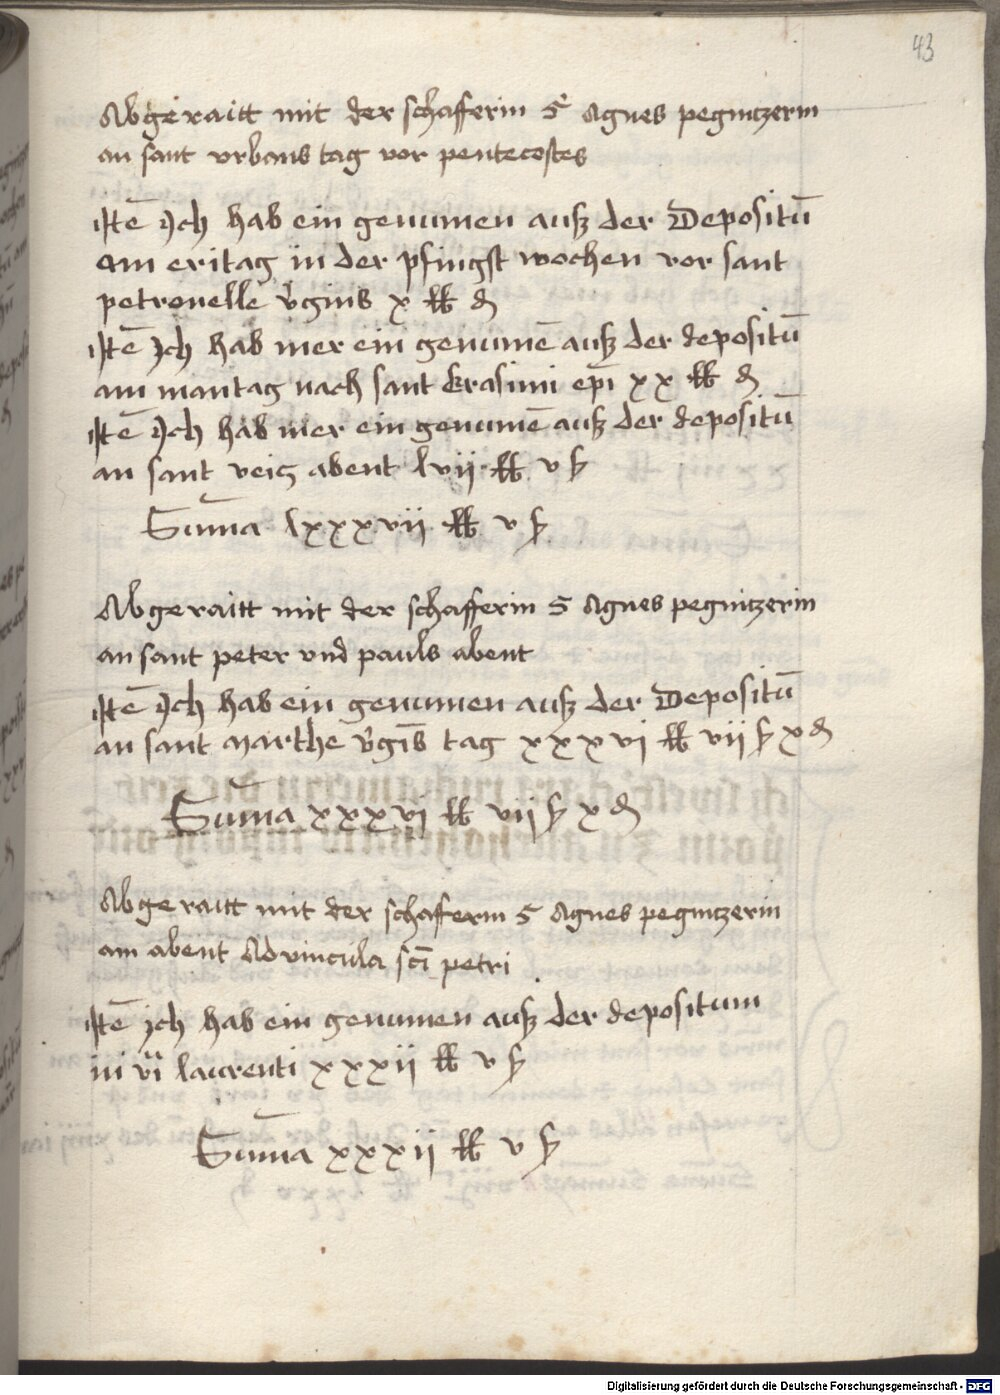 43
Abgeraitt mit der schafferin S Agnes pegnitzerin
an sant vrbans tag vor pentecostes
Itē Ich hab ein genumen ausz der Depositū
am eritag in der pfingst wochen vor sant
petronelle v̄ginis x lb d
Itē Ich hab mer ein genumē ausz der depositū
am mantag nach sant Erasimi epī xx lb d
Itē Ich hab mer ein genumē ausz der depositū
an sant veitz abent lvii lb v ß
Sum̄a lxxxvii lb v ß
Abgeraitt mit der schafferin S Agnes pegnitzerin
an sant peter vnd pauls abent
Itē Ich hab ein genumen ausz der Depositū
an sant marthe v̄gīs tag xxxvi lb vii ß x d
Sum̄a xxxvi lb vii ß x d
Abgeraitt mit der schafferin S Agnes pegnitzerin
am abent Advincula scī petri
Itē Ich hab ein genumen ausz der depositum
in vī laurenti xxxii lb v ß
Sum̄a xxxii lb v ß
Digitalisierung gefördert durch die Deutsche Forschungsgemeinschaft - DFG